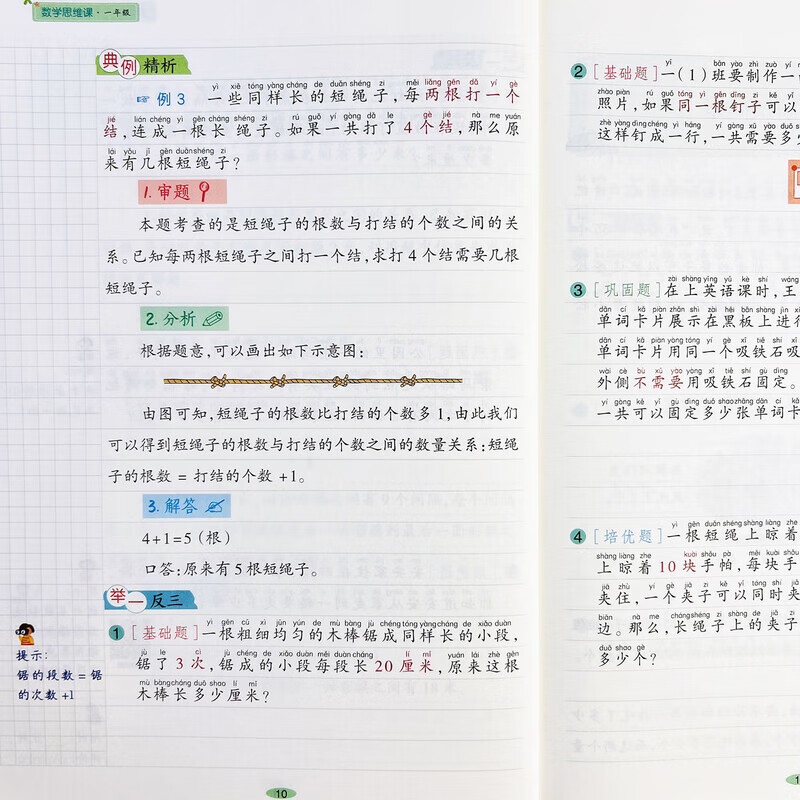 数学思维课·一年级
典例精析
例3 一些同样长的短绳子,每两根打一个
结,连成一根长绳子。如果一共打了4个结,那么原
来有几根短绳子?
1.审题
本题考查的是短绳子的根数与打结的个数之间的关
系。已知每两根短绳子之间打一个结,求打4个结需要几根
短绳子。
2.分析
根据题意,可以画出如下示意图:
由图可知,短绳子的根数比打结的个数多1,由此我们
可以得到短绳子的根数与打结的个数之间的数量关系:短绳
子的根数=打结的个数+1。
3.解答
4+1=5(根)
口答:原来有5根短绳子。
举一反三
1 [基础题]一根粗细均匀的木棒锯成同样长的小段,
锯了3次,锯成的小段每段长20厘米,原来这根
木棒长多少厘米?
提示:
锯的段数=锯
的次数+1
10
2 [基础题]一(1)班要制作一
照片,如果同一根钉子可以
这样钉成一行,一共需要多少
3 [巩固题]在上英语课时,王
单词卡片展示在黑板上进行
单词卡片用同一个吸铁石吸
外侧不需要用吸铁石固定。
一共可以固定多少张单词卡
4 [培优题]一根短绳上晾着
上晾着10块手帕,每块手
夹住,一个夹子可以同时夹
边。那么,长绳子上的夹子
多少个?